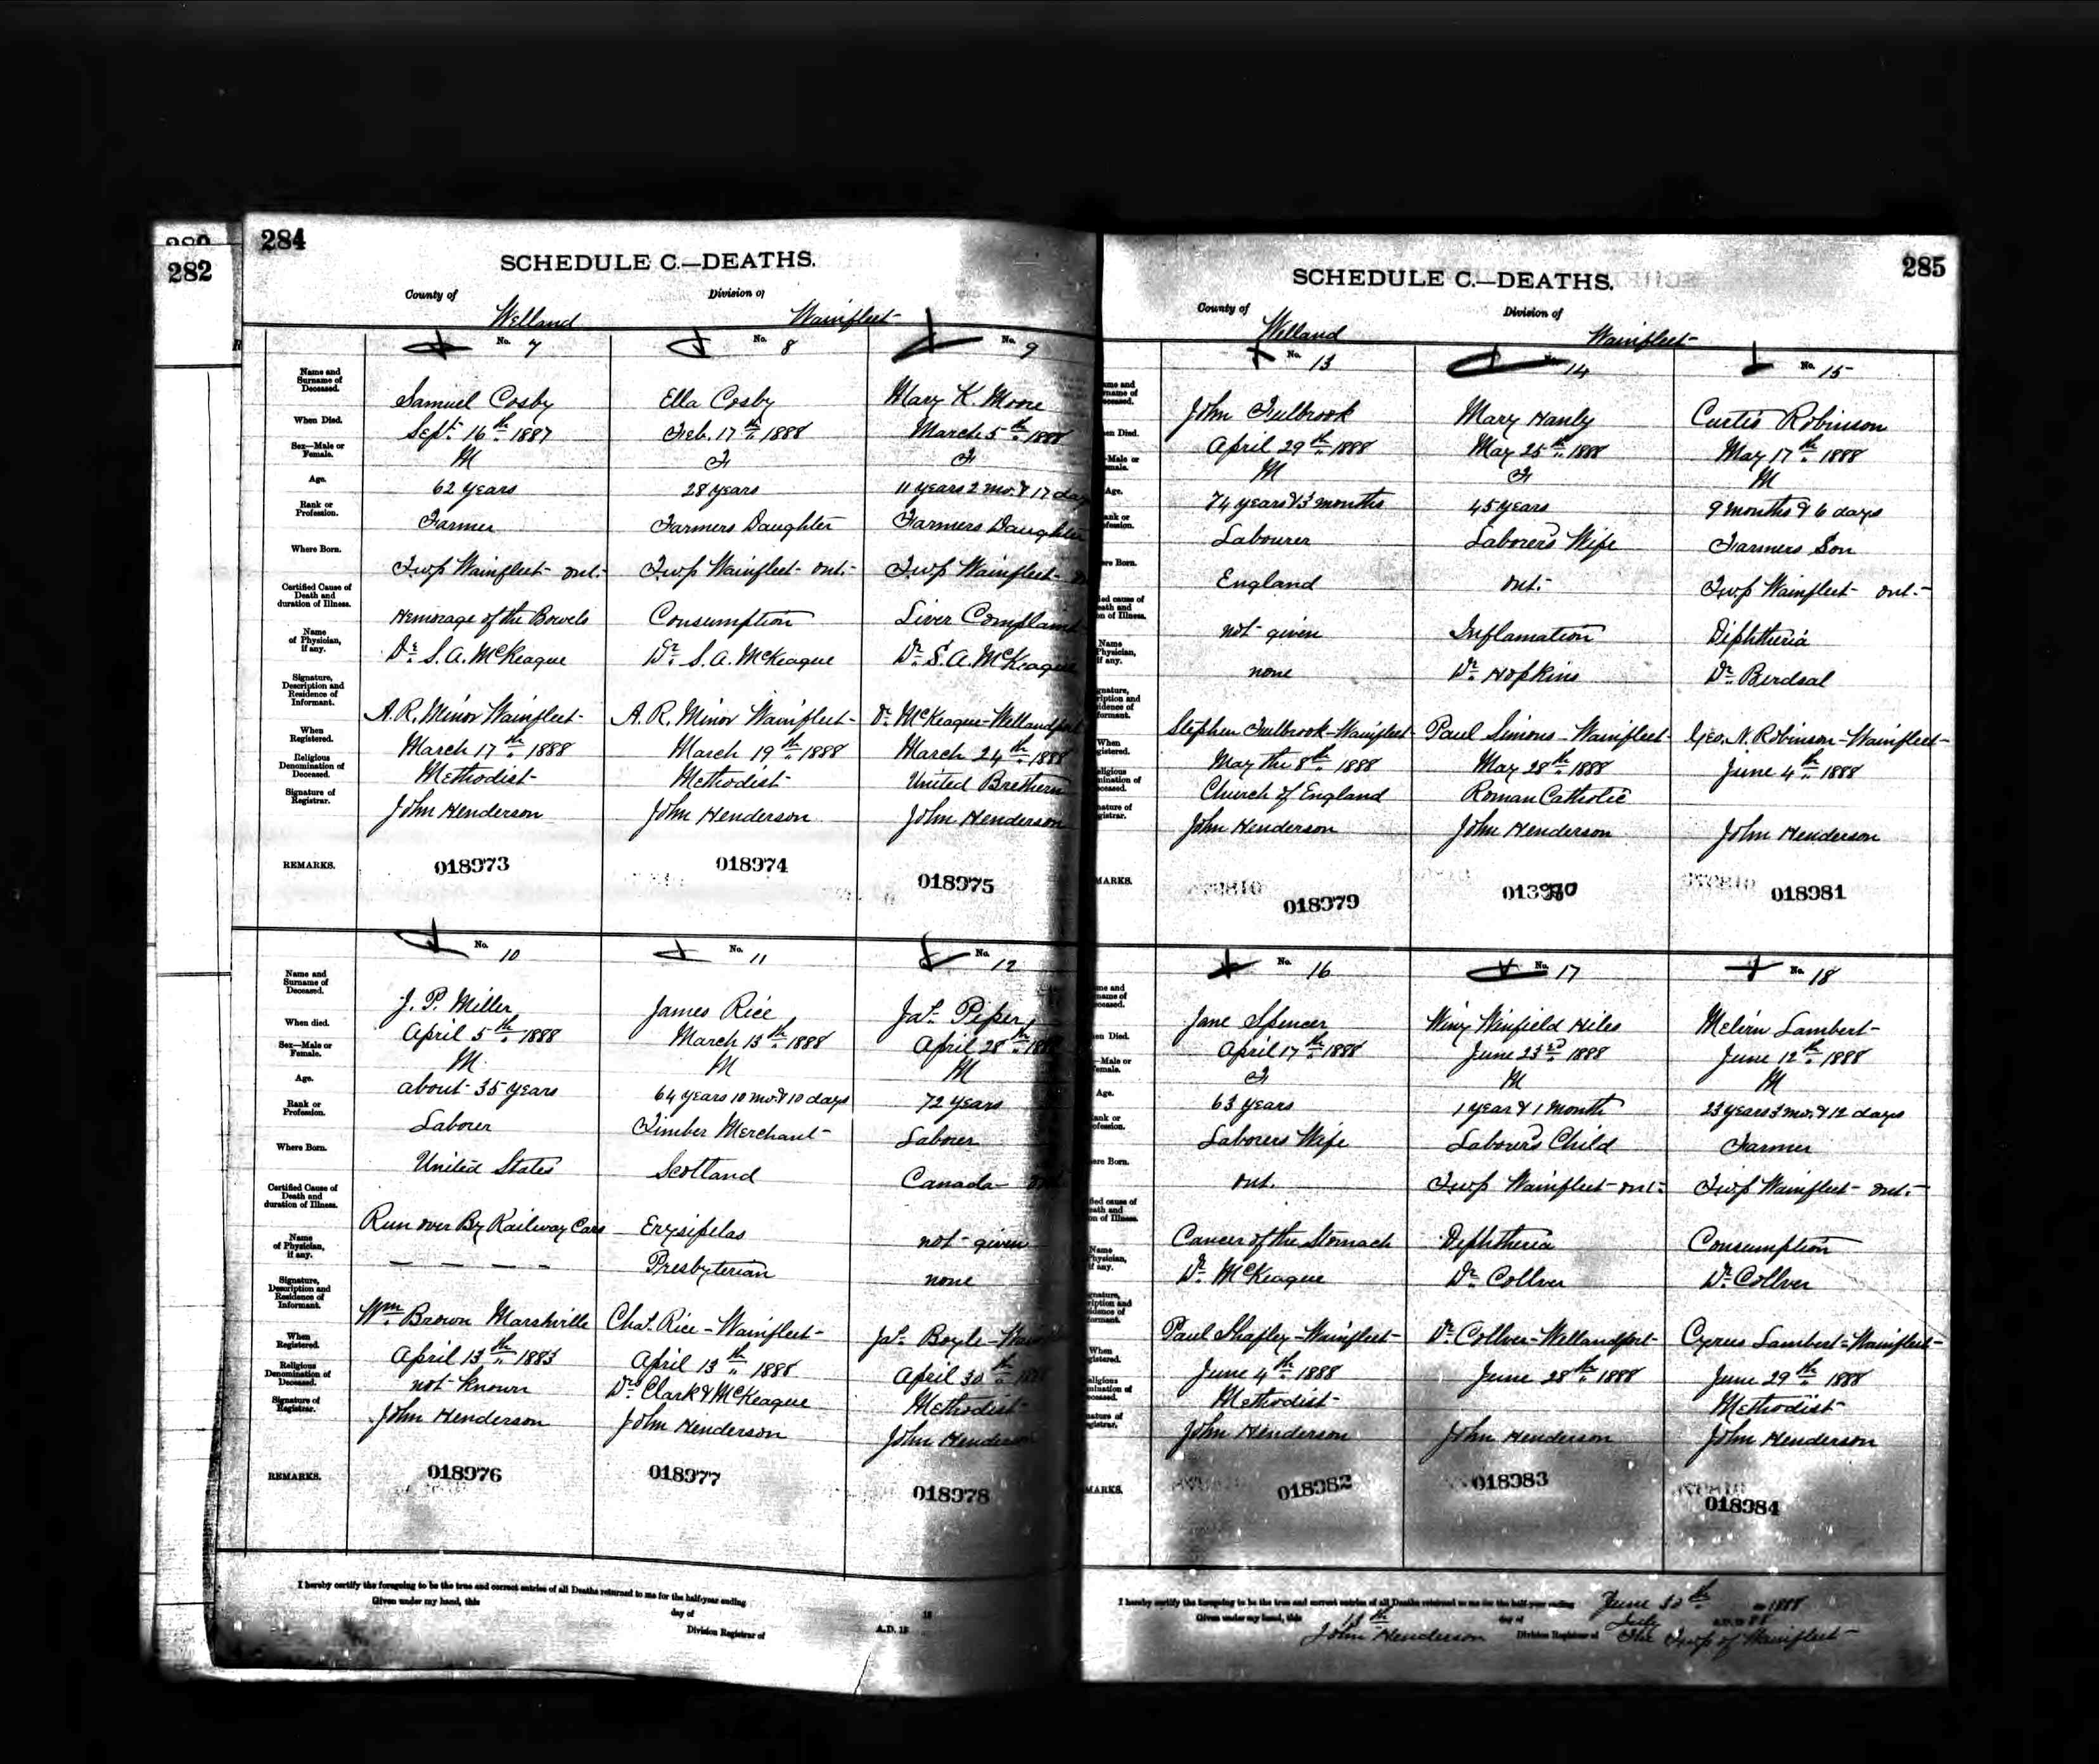 282
284
SCHEDULE C.—DEATHS.
County of Welland Division of Wainfleet
No. 7 No. 8 No. 9
Name and Surname of Deceased. Samuel Cosby Ella Cosby Mary K. Moore
When Died. Sept. 16th 1887 Feb. 17th 1888 March 5th 1888
Sex—Male or Female. M F F
Age. 62 years 28 years 11 years 2 mo. & 17 day
Rank or Profession. Farmer Farmers Daughter Farmers Daughter
Where Born. Twp Wainfleet Ont. Twp Wainfleet Ont. Twp Wainfleet
Certified Cause of Death and duration of Illness. Hemorage of the Bowels Consumption Liver Complaint
Name of Physician, if any. Dr. S. A. McKeague Dr. S. A. McKeague Dr. S. A. McKeague
Signature, Description and Residence of Informant. A. R. Minor Wainfleet A. R. Minor Wainfleet Dr. McKeague-Wellandport
When Registered. March 17th 1888 March 19th 1888 March 24th 1888
Religious Denomination of Deceased. Methodist Methodist United Brethern
Signature of Registrar. John Henderson John Henderson John Henderson
REMARKS. 018973 018974 018975
No. 10 No. 11 No. 12
Name and Surname of Deceased. J. P. Miller James Rice Jas. Piper
When died. April 5th 1888 March 13th 1888 April 28th 188
Sex—Male or Female. M M M
Age. about 35 years 64 years 10 mo. & 10 days 72 years
Rank or Profession. Laborer Timber Merchant Laborer
Where Born. United States Scotland Canada
Certified Cause of Death and duration of Illness. Run over By Railway Cars Erysipelas not given
Name of Physician, if any. — — — — Presbyterian none
Signature, Description and Residence of Informant. Wm. Brown Marshville Chas. Rice-Wainfleet Jas. Boyle-
When Registered. April 13th 1883 April 13th 1888 April 30th 188
Religious Denomination of Deceased. not known Dr. Clark & McKeague Methodist
Signature of Registrar. John Henderson John Henderson John Henderson
REMARKS. 018976 018977 018978
I hereby certify the foregoing to be the true and correct entries of all Deaths returned to me for the half-year ending 18
Given under my hand, this day of A.D. 18
Division Registrar of
285
SCHEDULE C.—DEATHS.
County of Welland Division of Wainfleet
No. 13 14 No. 15
John Fulbrook Mary Hanly Curtis Robinson
April 29th 1888 May 25th 1888 May 17th 1888
M F M
74 years & 3 months 45 years 9 months & 6 days
Labourer Laborers Wife Farmers Son
England Ont. Twp Wainfleet Ont.
not given Inflamation Diphtheria
none Dr. Hopkins Dr. Birdsal
Stephen Fulbrook-Wainfleet Paul Simons-Wainfleet Geo. N. Robinson-Wainfleet
May the 8th 1888 May 28th 1888 June 4th 1888
Church of England Roman Catholic
John Henderson John Henderson John Henderson
018979 018981
No. 16 No. 17 No. 18
Jane Spencer Winfield Hiles Lambert
April 17th 1888 June 23rd 1888 June 12th 1888
F M M
63 years 1 year & 1 month 23 years 3 mo. & 12 days
Laborers Wife Labours Child Farmer
Ont. Twp Wainfleet Ont. Twp Wainfleet Ont.
Cancer of the Stomach Diphtheria Consumption
Dr. McKeague Dr. Collver Dr. Collver
Paul Shafley-Wainfleet Dr. Collver-Wellandport Cyrus Lambert-Wainfleet
June 4th 1888 June 28th 1888 June 29th 1888
Methodist Methodist
John Henderson John Henderson John Henderson
018982 018983 018984
I hereby certify the foregoing to be the true and correct entries of all Deaths returned to me for the half-year ending June 30th 1888
Given under my hand, this 13th day of July
John Henderson Division Registrar of The Twp of Wainfleet